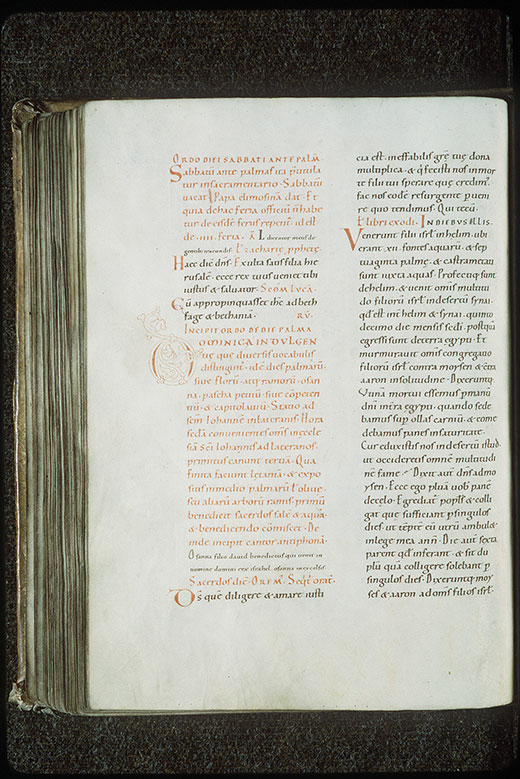 ORDO DIEI SABBATI ANTE PALM
Sabbatū ante palmas ita p̄titula
tur insacramentario. Sabbatū
uacat. Papa elimosina dat. Et
quia de hac feria officiū ñ habe
tur de eisdē ferus id est
de .iiii. feria. A Liberator meus de
gentib;
Haec dic̄ dn̄s. Exulta satis filia hie
rusalē. ecce rex tuus uenit tibi
iustus & saluator. SCDM LUCĀ.
Cū appropinquasset ihc̄ ad beth
fage & bethaniā. RV.
INCIPIT ORDO DE DIE PALMA
DOMINICA IN DULGEN
tię quę diuersis uocabulis
distinguit̄. id est dies palmarū.
siue florū. atq; ramorū. osan
na. pascha petitū. siue copeten
tiū. & capitolauiū. Statio ad
sc̄m Iohannē in lateranis. Hora
sc̄dā conuenientes om̄s in eccle
siā sc̄i Iohannis ad lateranos.
primitus canunt tertiā. Qua
finita faciunt letaniā. & expo
sitis in medio palmarū l̄ oliuę.
seu aliarū arborū ramis. primū
benedicit sacerdos salē & aquā.
& benedicendo cōmiscet. De
inde incipit cantor antiphonā.
Osanna filio dauid benedictus qui uenit in
nomine domini rex israhel. osanna in excelsis.
Sacerdos dic̄. OREM̄.
Ds̄ quē diligere & amare iusti
cia est. ineffabilis grē tuę dona
multiplica. & q̄ fecisti nos in mor
te filii tui sperare quę credim̄.
fac nos eodē resurgente perueni
re quo tendimus. Qui tecū.
E libri exodi. IN DIEBUS ILLIS.
Venerunt filii isrl̄ in helim. ubi
erant .xii. fontes aquarū. & sep
tuaginta palmę. & castrametati
sunt iuxta aquas. Profectiq; sunt
de helim. & uenit om̄is multitu
do filiorū isrl̄ in desertū synai.
qd̄ est int̄ helim & synai. quinto
decimo die mensis sc̄di. postquā
egressi sunt de terra egypti. Et
murmurauit om̄is congregatio
filiorū isrl̄ contra moysen & c̄tra
aaron in solitudine. Dixeruntq;
Utinā mortui essemus p̄ manū
dn̄i in terra egypti. quando sede
bamus sup ollas carniū. & come
debamus panes in saturitate.
Cur eduxistis nos in desertū istud.
ut occideretis om̄ē multitudi
nē fame. Dixit aut̄ dn̄s ad mo
ysen. Ecce ego pluā uob̄ panē
de celo. Egrediat̄ popl̄s & colli
gat quę sufficiant p singulos
dies. ut tēptē eū utrū ambulet
in lege mea an ñ. Die aut̄ sexta
parent qd̄ inferant. & sit du
plū quā colligere solebant p
singulos dies. Dixeruntq; moy
ses & aaron ad om̄s filios isrl̄.